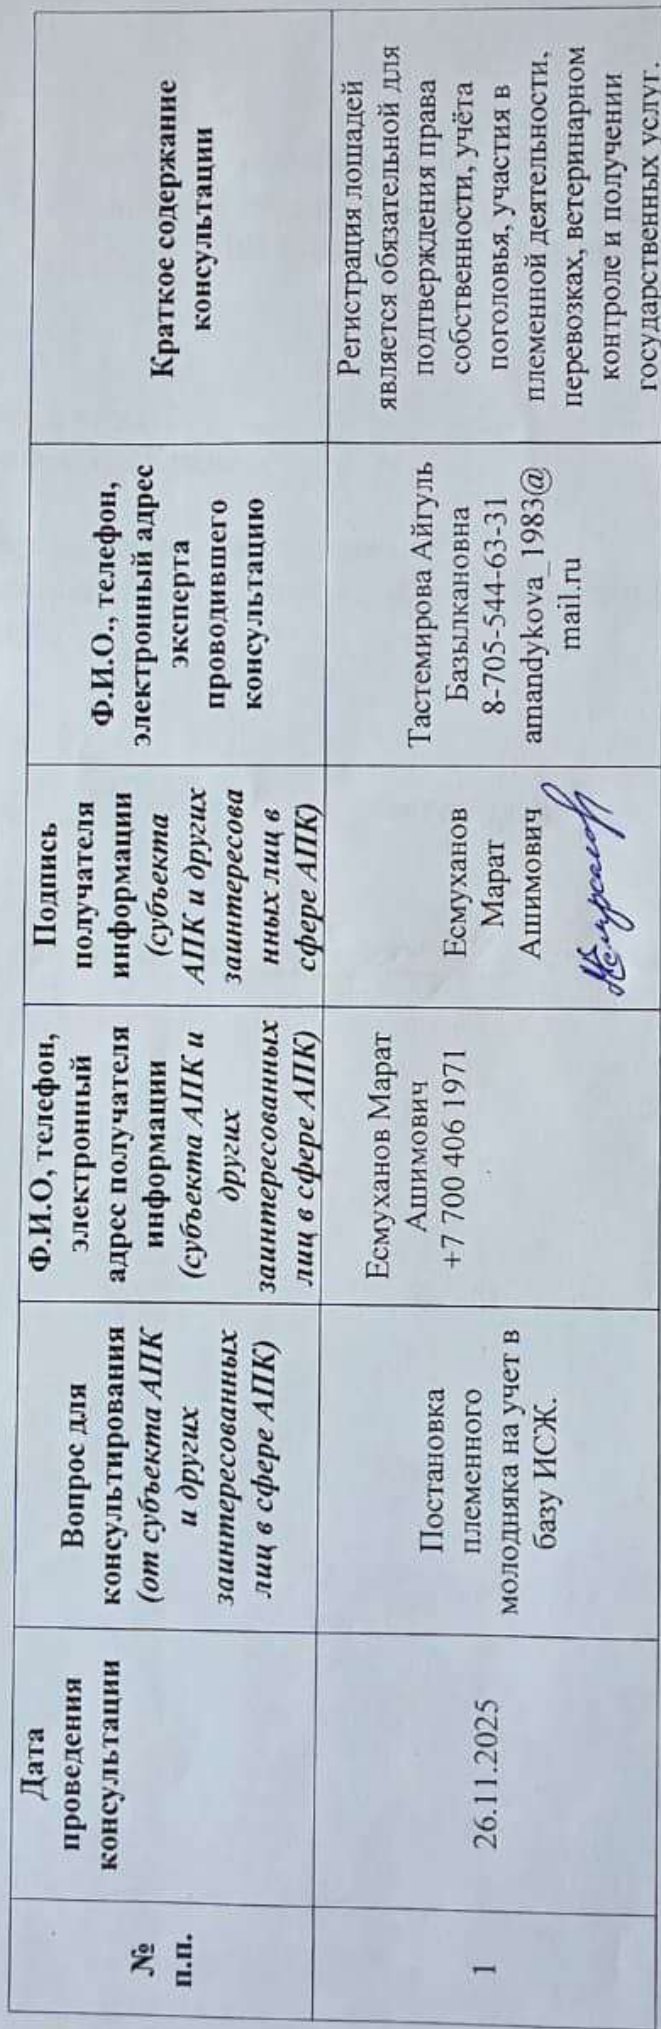 №
п.п.
Дата
проведения
консультации
Вопрос для
консультирования
(от субъекта АПК
и других
заинтересованных
лиц в сфере АПК)
Ф.И.О, телефон,
электронный
адрес получателя
информации
(субъекта АПК и
других
заинтересованных
лиц в сфере АПК)
Подпись
получателя
информации
(субъекта
АПК и других
заинтересова
нных лиц в
сфере АПК)
Ф.И.О., телефон,
электронный адрес
эксперта
проводившего
консультацию
Краткое содержание
консультации
1
26.11.2025
Постановка
племенного
молодняка на учет в
базу ИСЖ.
Есмуханов Марат
Ашимович
+7 700 406 1971
Есмуханов
Марат
Ашимович
Тастемирова Айгуль
Базылкановна
8-705-544-63-31
amandykova_1983@
mail.ru
Регистрация лошадей
является обязательной для
подтверждения права
собственности, учёта
поголовья, участия в
племенной деятельности,
перевозках, ветеринарном
контроле и получении
государственных услуг.